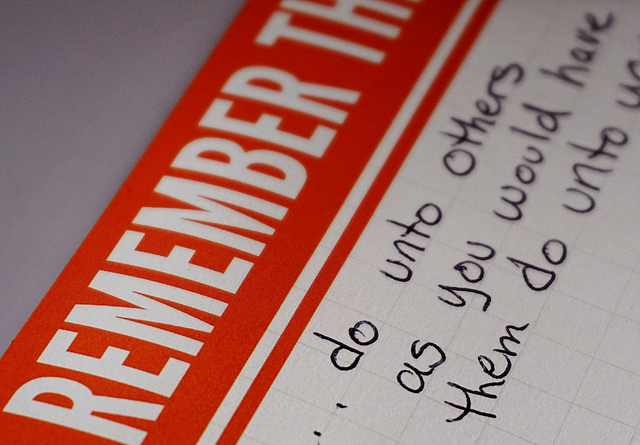 REMEMBER TH
... do unto others
as you would have
them do unto